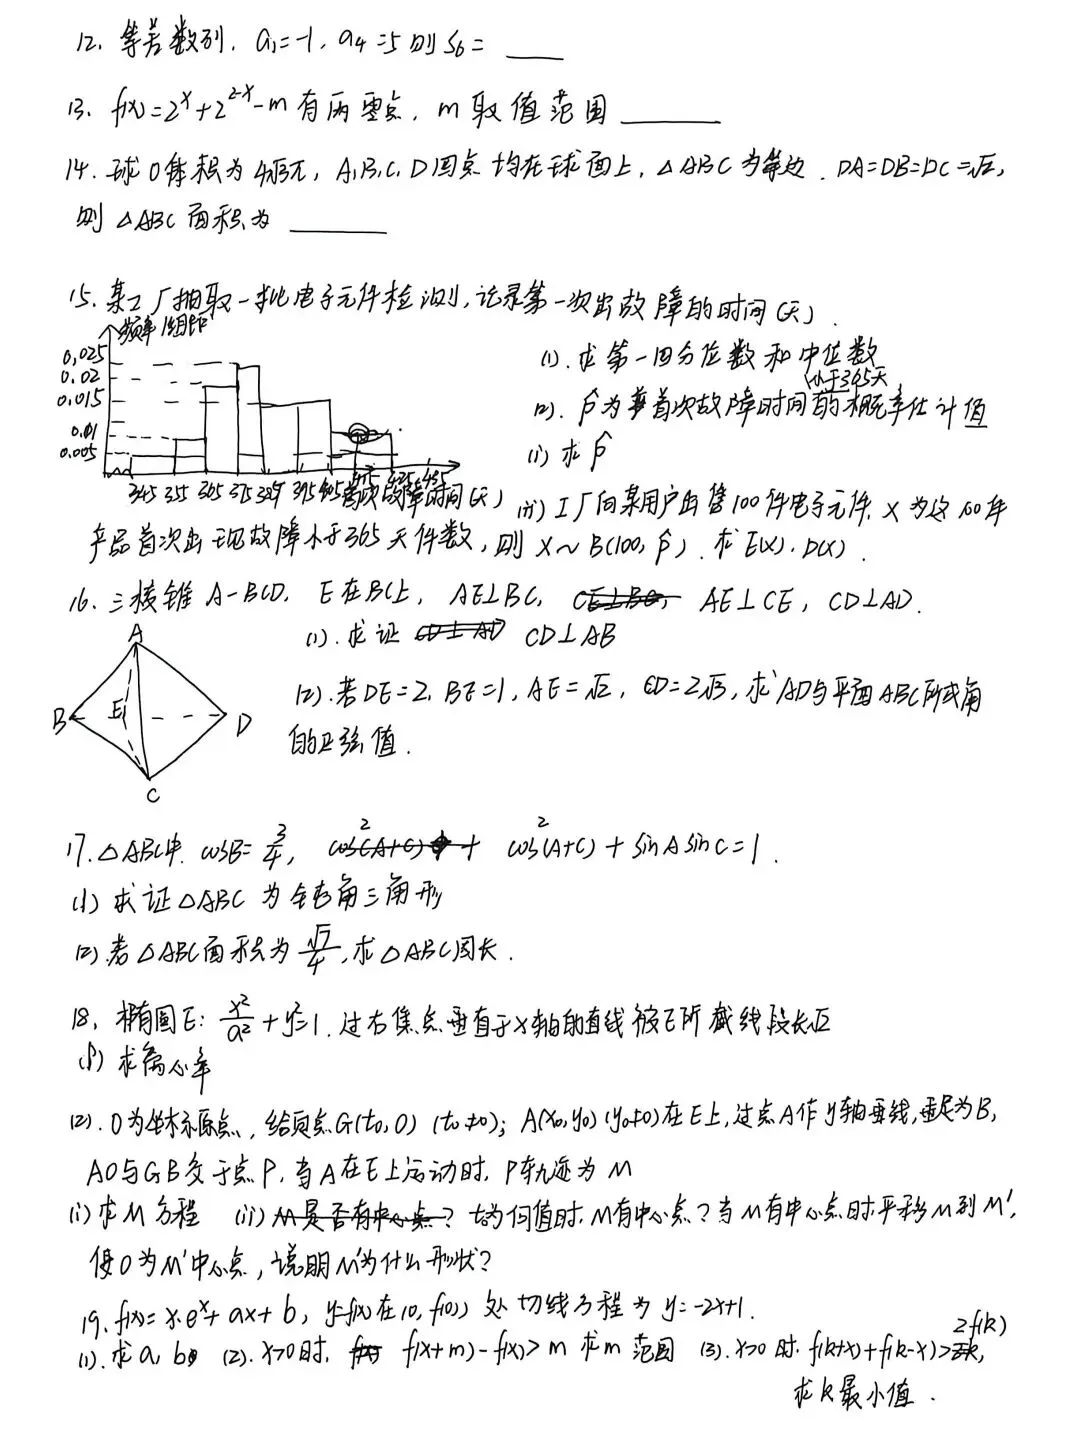 12. 等差数列. a₁=-1, a₄=5 则 S₆= ____
13. f(x)=2^x+2^{2-x}-m 有两零点, m 取值范围 ____
14. 球O体积为4√3π, A,B,C,D四点均在球面上, △ABC为等边. DA=DB=DC=√2,
则△ABC面积为 ____
15. 某工厂抽取一批电子元件检测, 记录第一次出故障的时间(天).
频率/组距
0.025
0.02
0.015
0.01
0.005
345 355 365 375 385 395 405 415 425 435
首次故障时间(天)
(1). 求第一四分位数和中位数
(小于365天
(2). p̂为首次故障时间的概率估计值
(i) 求 p̂
(ii) 工厂向某用户出售100件电子元件, X为这100件
产品首次出现故障小于365天件数, 则 X~B(100, p̂). 求E(X), D(X).
16. 三棱锥 A-BCD. E在BC上, AE⊥BC, AE⊥CE, CD⊥AD.
(1). 求证 CD⊥AB
(2). 若DE=2, BE=1, AE=√2, CD=2√3, 求AD与平面ABC所成角
的正弦值.
A
B
E
D
C
17. △ABC中. cosB=3/4, cos²(A+C)+sinAsinC=1.
(1) 求证△ABC为钝角三角形
(2) 若△ABC面积为 √7/4, 求△ABC周长.
18. 椭圆E: x²/a²+y²=1. 过右焦点垂直于x轴的直线被E所截线段长√2
(1) 求离心率
(2). O为坐标原点, 给定点G(t₀,0) (t₀≠0); A(x₀,y₀)(y₀≠0)在E上, 过点A作y轴垂线, 垂足为B,
AO与GB交于点P, 当A在E上运动时, P轨迹为M
(i) 求M方程 (ii) t₀为何值时, M有中心点? 当M有中心点时, 平移M到M′,
使O为M′中心点, 说明M′为什么形状?
19. f(x)=x·e^x+ax+b, y=f(x)在(0,f(0))处切线方程为y=-2x+1.
(1). 求a, b (2). x>0时, f(x+m)-f(x)>m 求m范围 (3). x>0时. f(k+x)+f(k-x)>2f(k)
求k最小值.